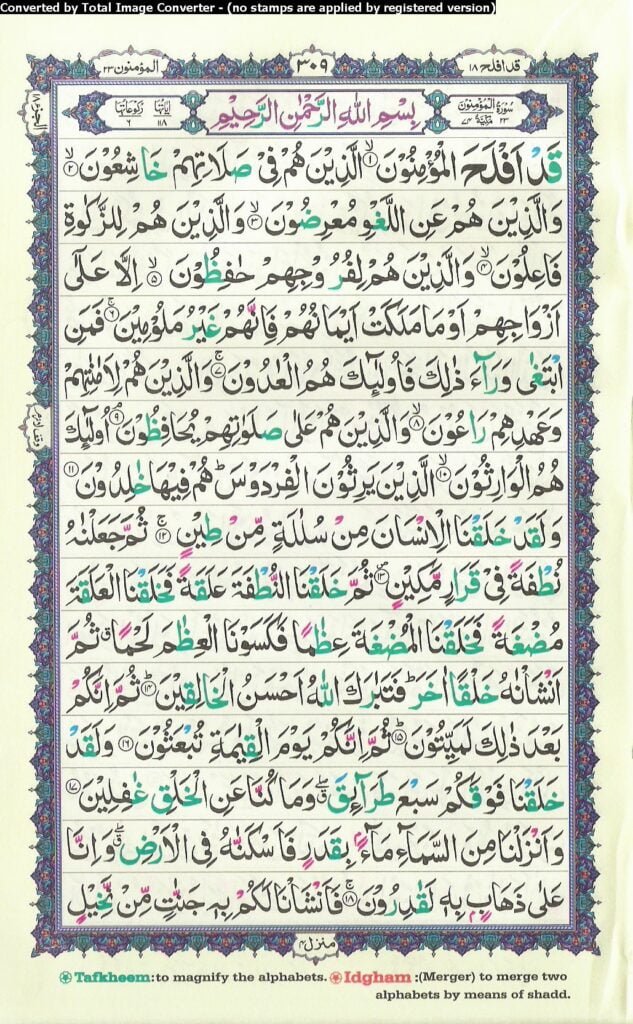 Converted by Total Image Converter - (no stamps are applied by registered version)
قد افلح ١٨
٣٠٩
المؤمنون ٢٣
سورة المؤمنون ٢٣ مكية ٧٤
بِسْمِ اللّٰهِ الرَّحْمٰنِ الرَّحِيْمِ
اٰيَاتُهَا ١١٨ رُكُوْعَاتُهَا ٦
قَدْ اَفْلَحَ الْمُؤْمِنُوْنَ ۙ‏﴿۱﴾ الَّذِيْنَ هُمْ فِيْ صَلَاتِهِمْ خَاشِعُوْنَ ۙ‏﴿۲﴾
وَالَّذِيْنَ هُمْ عَنِ اللَّغْوِ مُعْرِضُوْنَ ۙ‏﴿۳﴾ وَالَّذِيْنَ هُمْ لِلزَّكٰوةِ
فَاعِلُوْنَ ۙ‏﴿۴﴾ وَالَّذِيْنَ هُمْ لِفُرُوْجِهِمْ حٰفِظُوْنَ ۙ‏﴿۵﴾ اِلَّا عَلٰٓى
اَزْوَاجِهِمْ اَوْ مَا مَلَكَتْ اَيْمَانُهُمْ فَاِنَّهُمْ غَيْرُ مَلُوْمِيْنَ ۚ‏﴿۶﴾ فَمَنِ
ابْتَغٰى وَرَآءَ ذٰلِكَ فَاُولٰٓئِكَ هُمُ الْعٰدُوْنَ ۚ‏﴿۷﴾ وَالَّذِيْنَ هُمْ لِاَمٰنٰتِهِمْ
وَعَهْدِهِمْ رَاعُوْنَ ۙ‏﴿۸﴾ وَالَّذِيْنَ هُمْ عَلٰى صَلَوٰتِهِمْ يُحَافِظُوْنَ ۘ‏﴿۹﴾ اُولٰٓئِكَ
وقف لازم
هُمُ الْوَارِثُوْنَ ۙ‏﴿۱۰﴾ الَّذِيْنَ يَرِثُوْنَ الْفِرْدَوْسَ ؕ هُمْ فِيْهَا خٰلِدُوْنَ ﴿۱۱﴾
وَلَقَدْ خَلَقْنَا الْاِنْسَانَ مِنْ سُلٰلَةٍ مِّنْ طِيْنٍ ۚ‏﴿۱۲﴾ ثُمَّ جَعَلْنٰهُ
نُطْفَةً فِيْ قَرَارٍ مَّكِيْنٍ ۪‏﴿۱۳﴾ ثُمَّ خَلَقْنَا النُّطْفَةَ عَلَقَةً فَخَلَقْنَا الْعَلَقَةَ
مُضْغَةً فَخَلَقْنَا الْمُضْغَةَ عِظٰمًا فَكَسَوْنَا الْعِظٰمَ لَحْمًا ۗ ثُمَّ
اَنْشَاْنٰهُ خَلْقًا اٰخَرَ ؕ فَتَبٰرَكَ اللّٰهُ اَحْسَنُ الْخَالِقِيْنَ ؕ‏﴿۱۴﴾ ثُمَّ اِنَّكُمْ
بَعْدَ ذٰلِكَ لَمَيِّتُوْنَ ؕ‏﴿۱۵﴾ ثُمَّ اِنَّكُمْ يَوْمَ الْقِيٰمَةِ تُبْعَثُوْنَ ﴿۱۶﴾ وَلَقَدْ
خَلَقْنَا فَوْقَكُمْ سَبْعَ طَرَآئِقَ ۖ وَمَا كُنَّا عَنِ الْخَلْقِ غٰفِلِيْنَ ﴿۱۷﴾
وَاَنْزَلْنَا مِنَ السَّمَآءِ مَآءًۢ بِقَدَرٍ فَاَسْكَنّٰهُ فِي الْاَرْضِ ۖ وَاِنَّا
عَلٰى ذَهَابٍۢ بِهٖ لَقٰدِرُوْنَ ۚ‏﴿۱۸﴾ فَاَنْشَاْنَا لَكُمْ بِهٖ جَنّٰتٍ مِّنْ نَّخِيْلٍ
منزل ٤
Tafkheem:to magnify the alphabets. Idgham :(Merger) to merge two
alphabets by means of shadd.